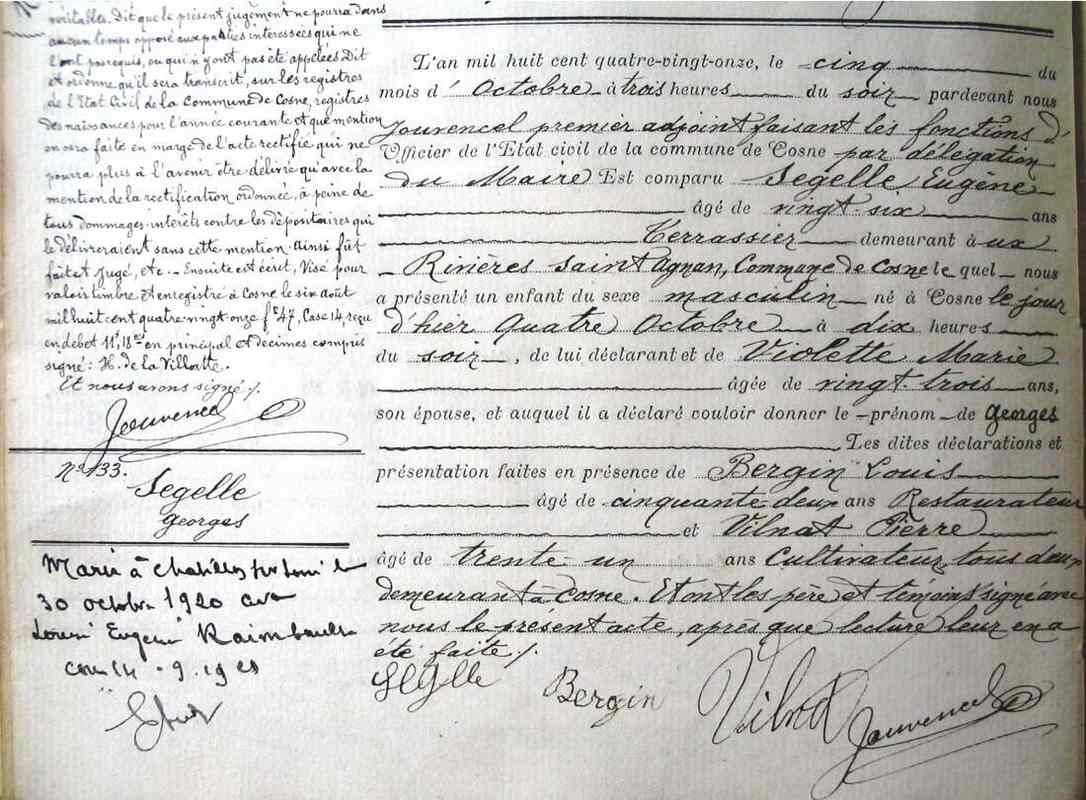 véritables. Dit que le présent jugement ne pourra dans
aucun temps opposé aux parties intéressées qui ne
l'ont pas requis, ou qui n'y ont pas été appelées Dit
et ordonne qu'il sera transcrit, sur les registres
de l'Etat Civil de la Commune de Cosne, registres
des naissances pour l'année courante et que mention
en sera faite en marge de l'acte rectifié qui ne
pourra plus à l'avenir être délivré qu'avec la
mention de la rectification ordonnée, à peine de
tous dommages-intérêts contre les dépositaires qui
le délivreraient sans cette mention. Ainsi fût
fait et jugé, etc. - Ensuite est écrit, Visé pour
valoir timbre et enregistré à Cosne le six août
mil huit cent quatre-vingt-onze fº 47, Case 14, reçu
en débet 11f, 18c en principal et décimes compris
signé: H. de la Villatte.
Et nous avons signé /.
Jouvencel
Nº 133.
Segelle
Georges
Marié à Chatillon sur Loire le
30 octobre 1920 avec
Eugénie Raimbault
14-9-19
L'an mil huit cent quatre-vingt-onze, le cinq du
mois d' Octobre à trois heures du soir pardevant nous
Jouvencel premier adjoint faisant les fonctions d'
Officier de l'Etat civil de la commune de Cosne par délégation
du Maire Est comparu Segelle Eugène
âgé de vingt-six ans
Terrassier demeurant à ux
Rivières Saint Agnan, Commune de Cosne le quel nous
a présenté un enfant du sexe masculin né à Cosne le jour
d'hier Quatre Octobre à dix heures
du soir, de lui déclarant et de Violette Marie
âgée de vingt-trois ans,
son épouse, et auquel il a déclaré vouloir donner le prénom de Georges
Les dites déclarations et
présentation faites en présence de Bergin Louis
âgé de cinquante deux ans Restaurateur
et Vilnat Pierre
âgé de trente-un ans Cultivateur, tous deux
demeurant à Cosne. Et ont les père et témoins signé avec
nous le présent acte, après que lecture leur en a
été faite /.
Segelle Bergin Vilnat Jouvencel